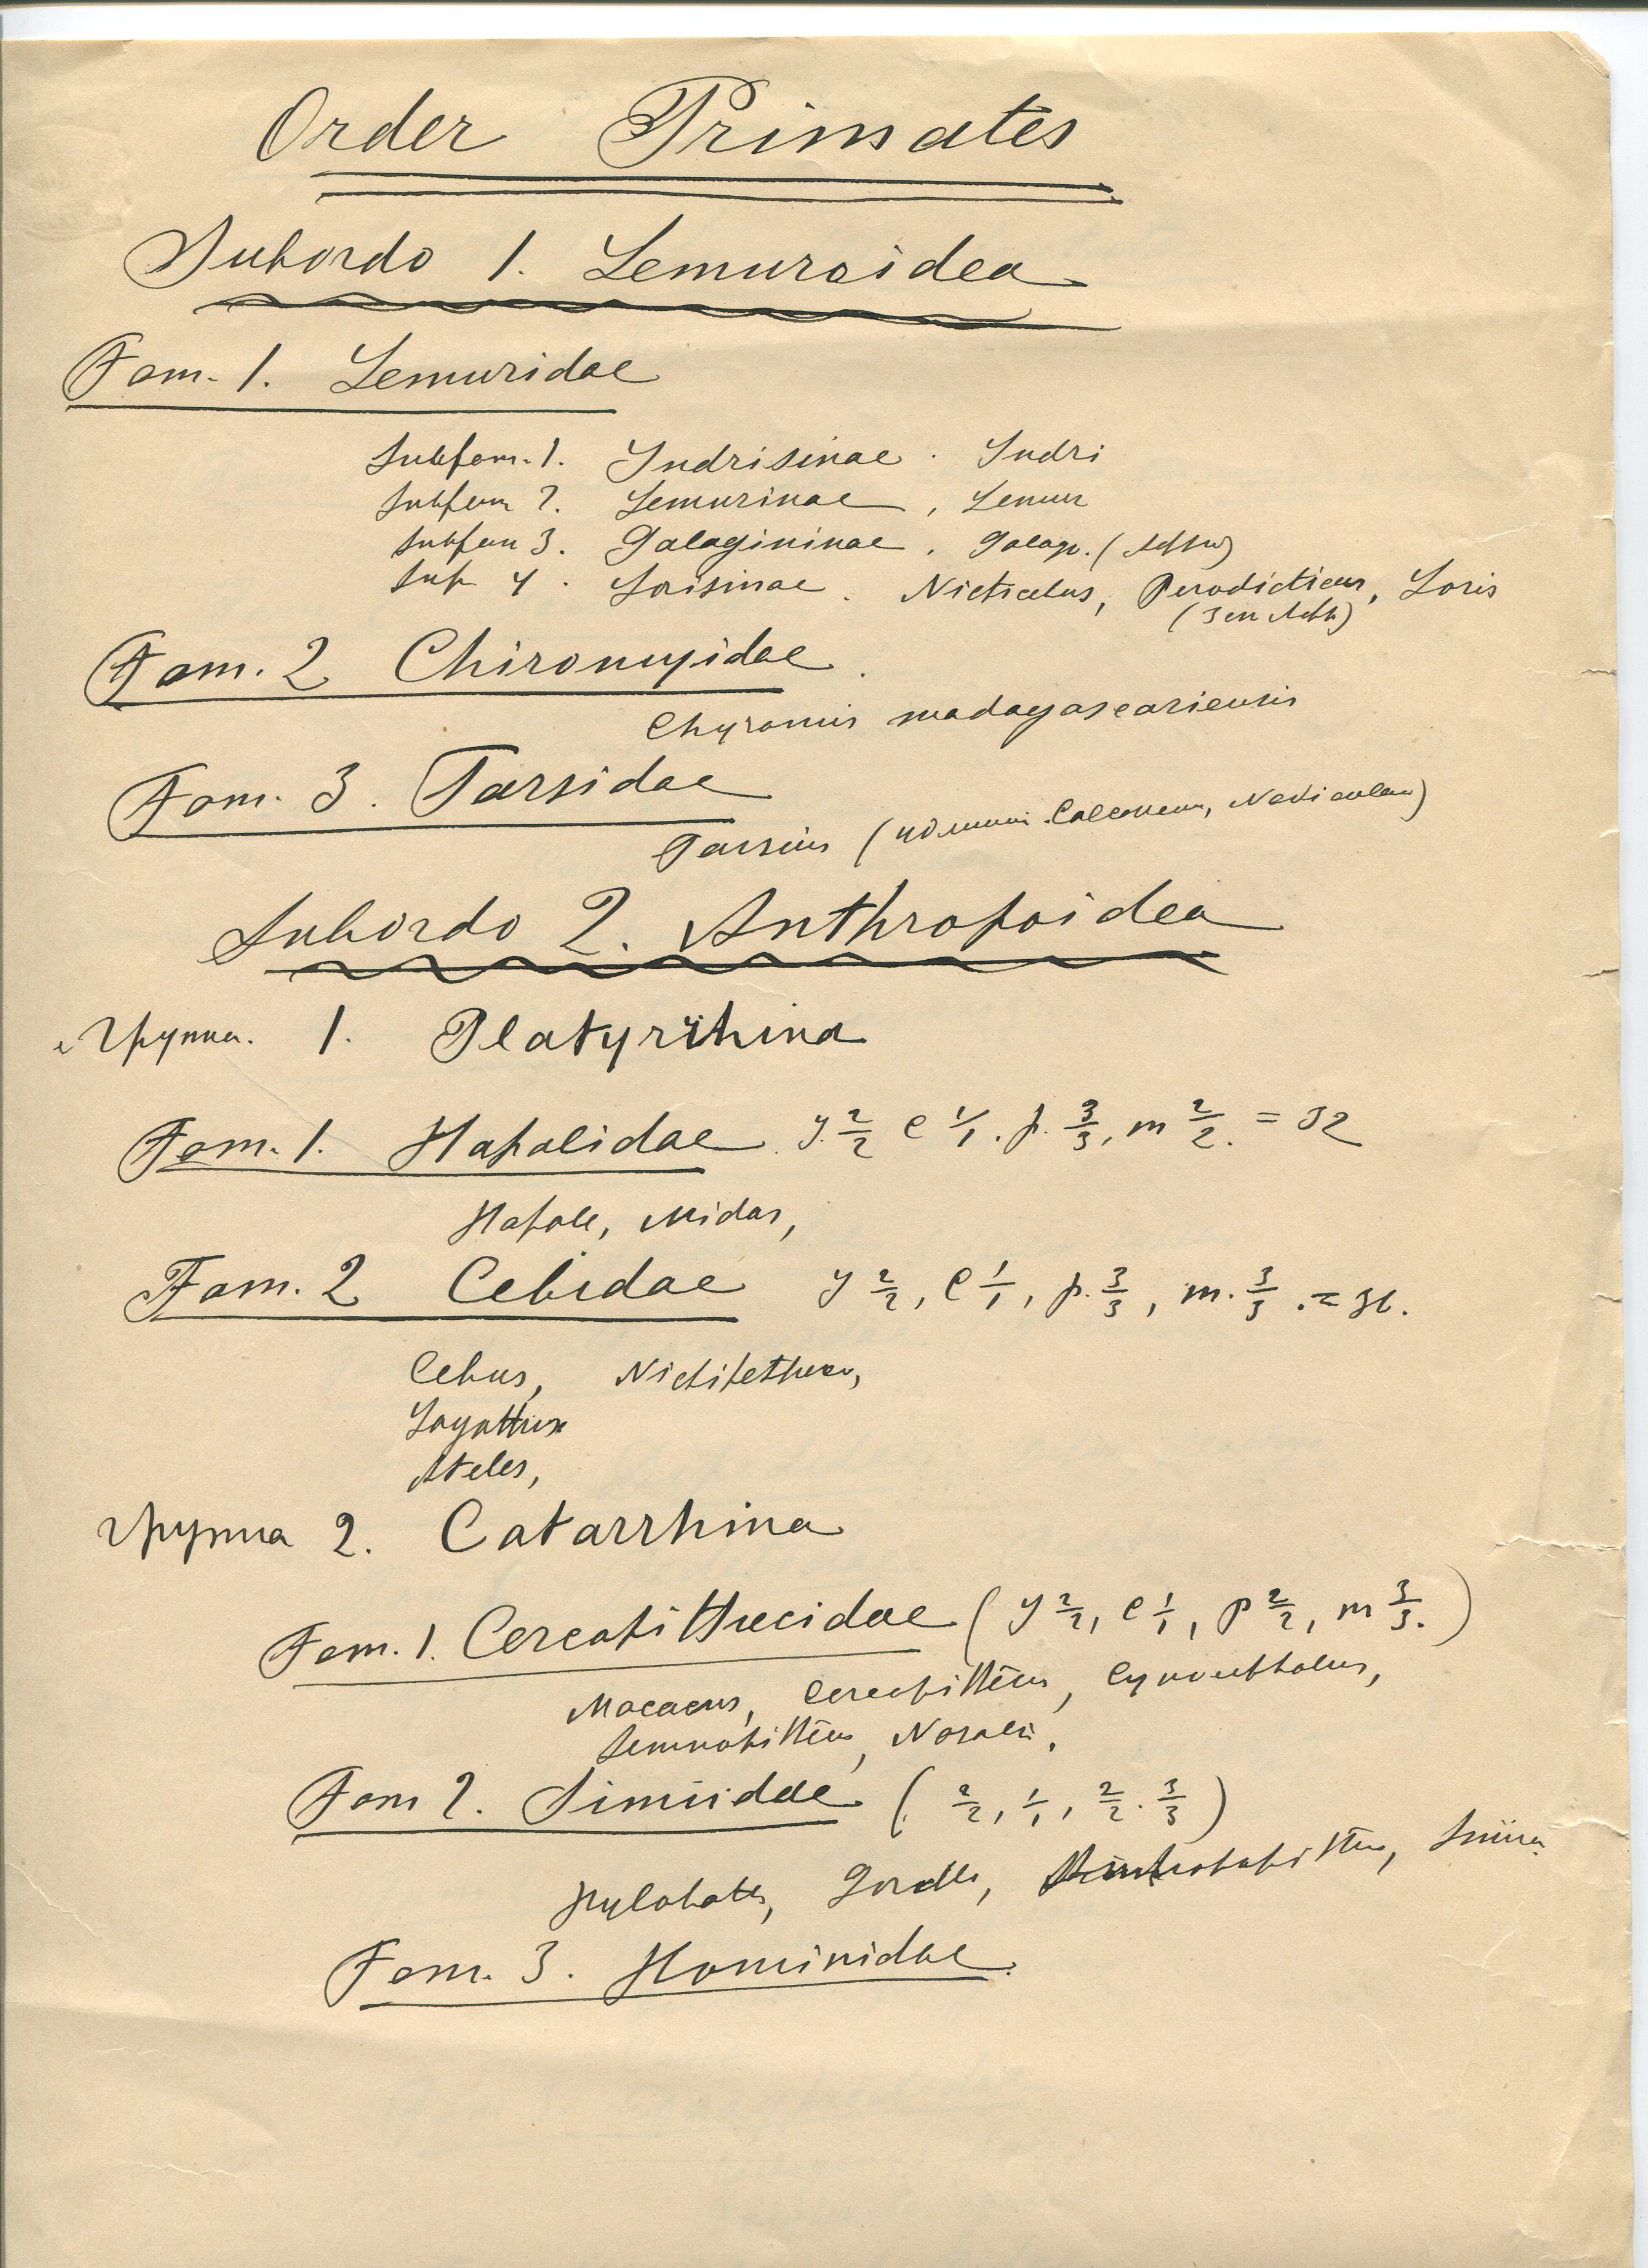 Order Primates
Subordo 1. Lemuroidea
Fam. 1. Lemuridae
Subfam. 1. Indrisinae. Indri
Subfam 2. Lemurinae, Lemur
Subfam 3. Galagininae. Galago.
Subf 4. Lorisinae. Nicticebus, Perodicticus, Loris
Fam. 2 Chiromyidae.
Chyromis madagascariensis
Fam. 3. Tarsidae
Tarsius (удлинни Calcaneum, Naviculare)
Subordo 2. Anthropoidea
Группа. 1. Platyrrhina
Fam. 1. Hapalidae. I. 2/2 C 1/1. p. 3/3, m 2/2. = 32
Hapale, Midas,
Fam. 2 Cebidae I 2/2, C 1/1, p. 3/3, m. 3/3. = 36.
Cebus, Nictipithecus,
Lagothrix
Ateles,
Группа 2. Catarrhina
Fam. 1. Cercopithecidae (I 2/2, C 1/1, p 2/2, m 3/3.)
Macacus, Cercopithecus, Cynocephalus,
Semnopithecus, Nasalis.
Fam 2. Simiidae (2/2, 1/1, 2/2. 3/3)
Hylobates, Gorilla, Simia
Fam. 3. Hominidae.